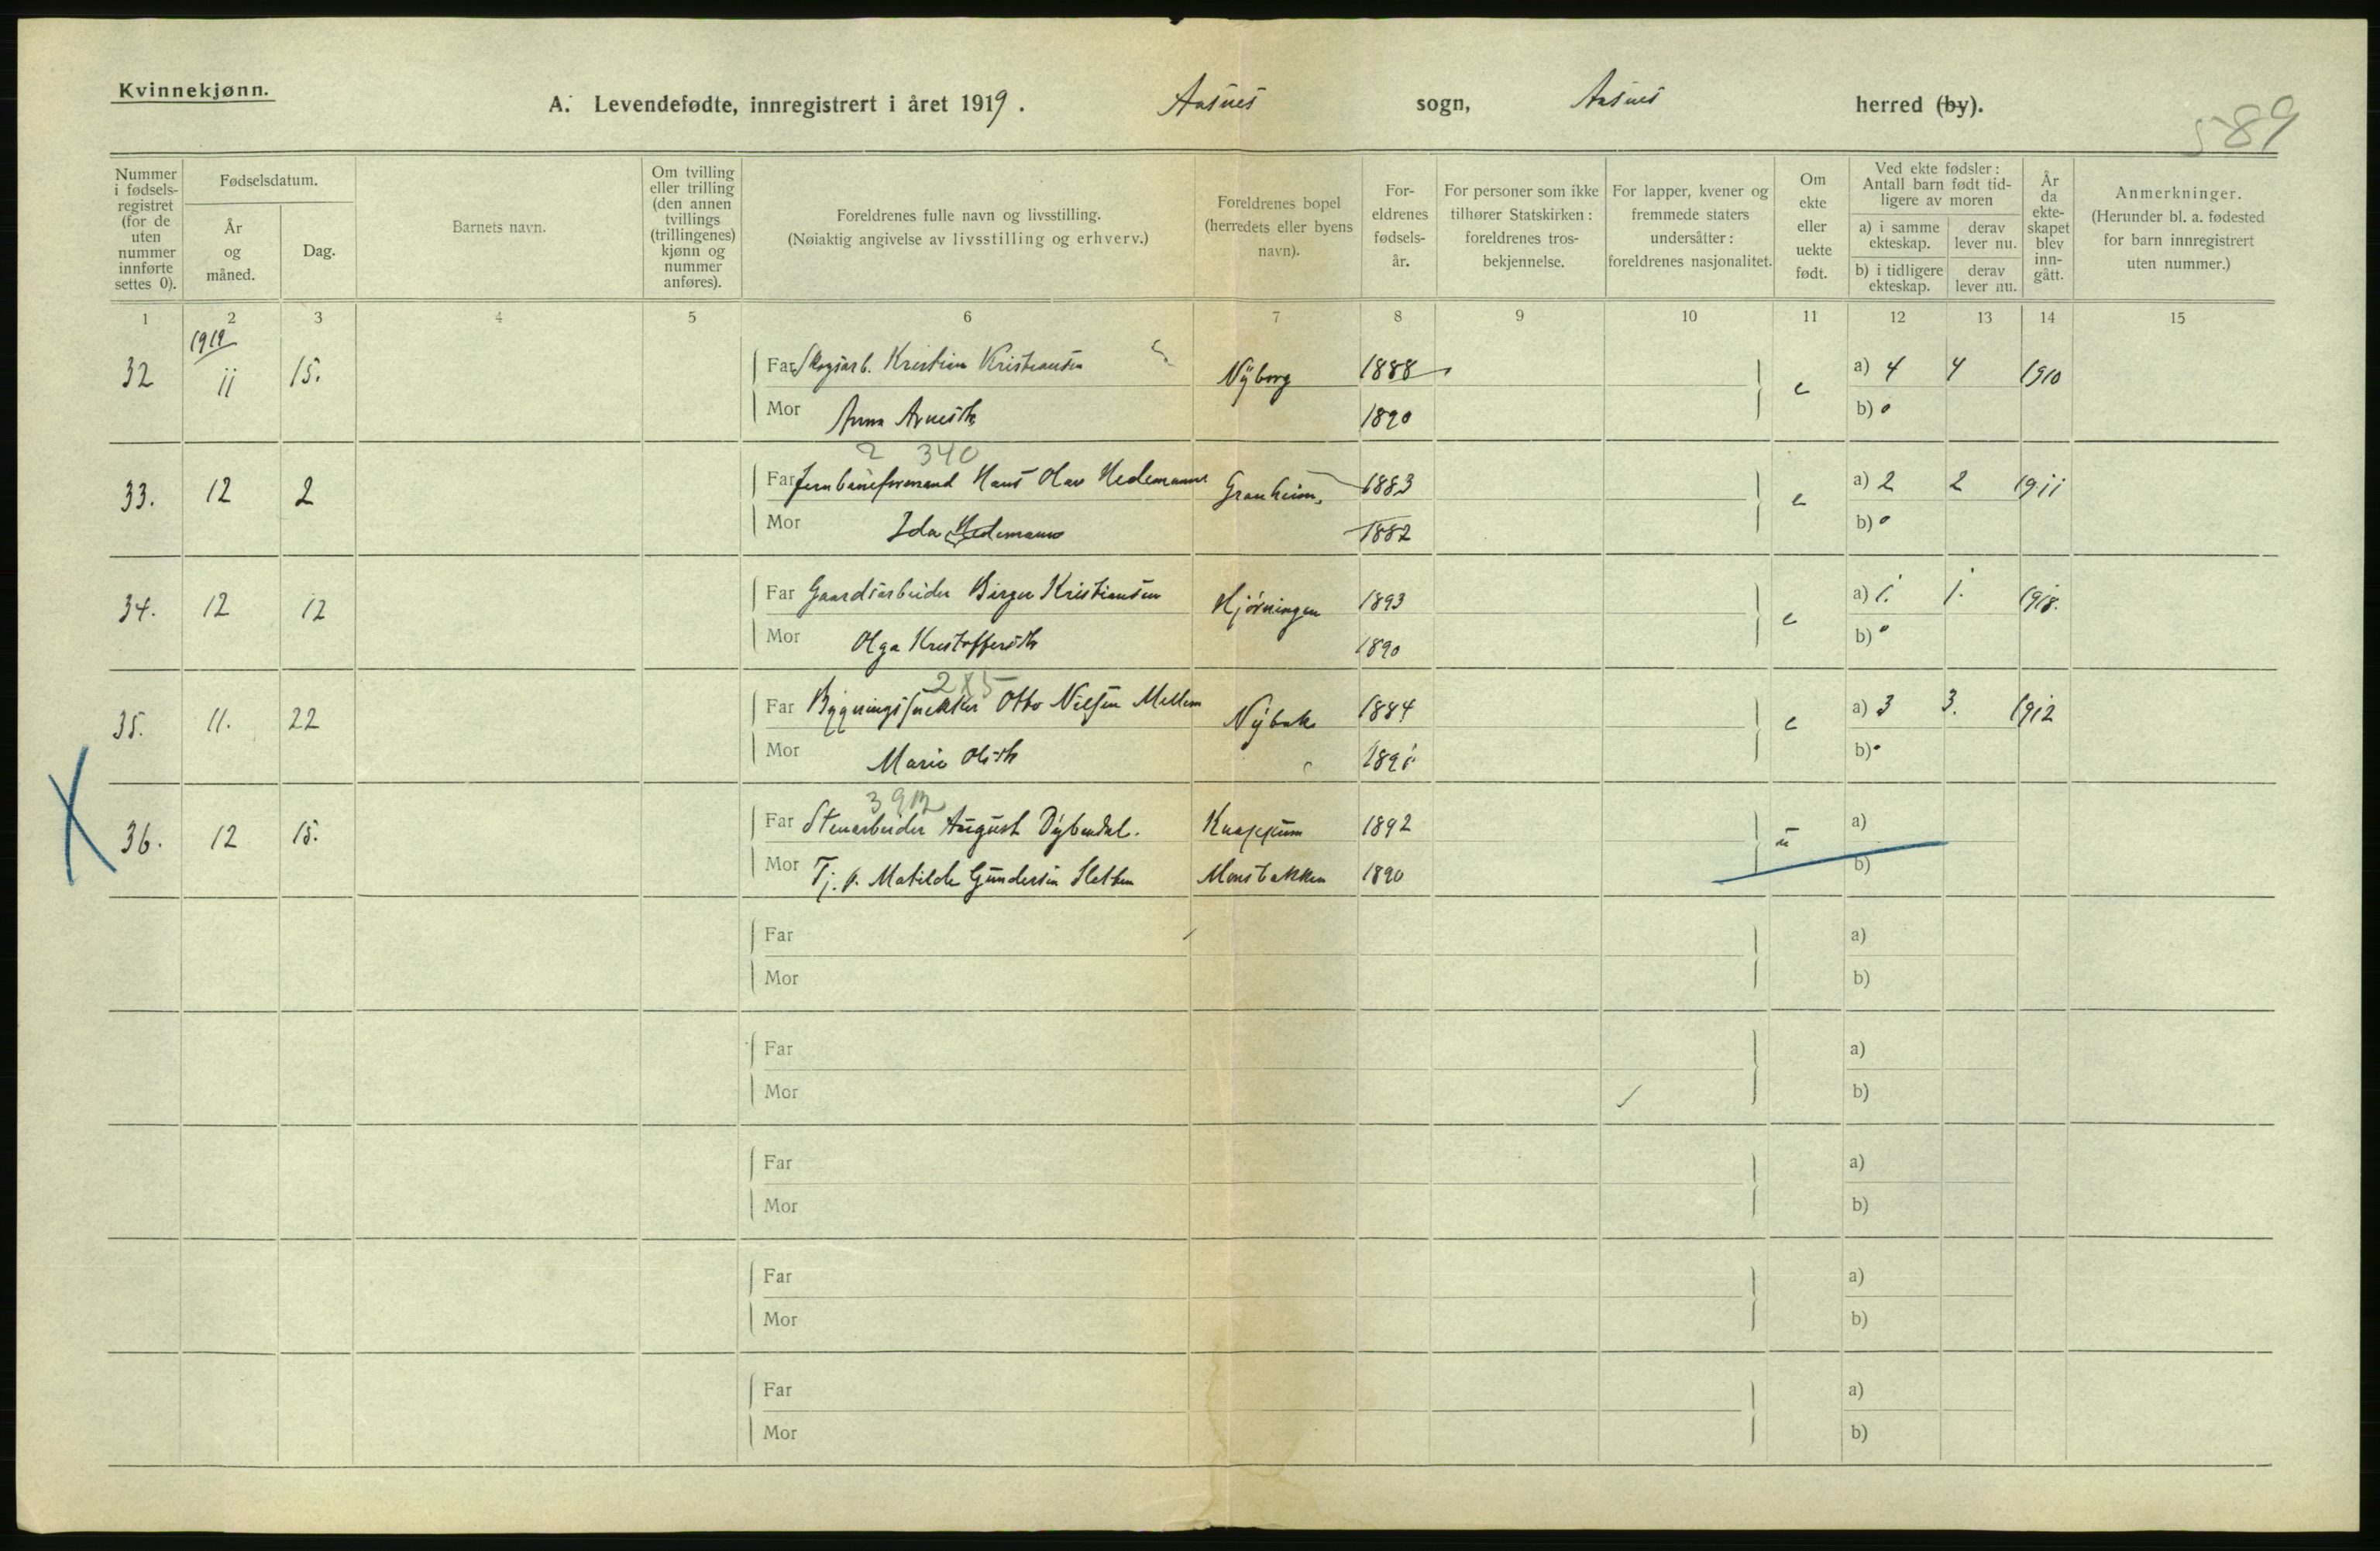 Kvinnekjønn.
A. Levendefødte, innregistrert i året 1919. Aasnes sogn, Aasnes herred (by).
589
Nummer i fødsels-registret (for de uten nummer innførte settes 0).
Fødselsdatum.
År og måned.
Dag.
Barnets navn.
Om tvilling eller trilling (den annen tvillings (trillingenes) kjønn og nummer anføres).
Foreldrenes fulle navn og livsstilling.
(Nøiaktig angivelse av livsstilling og erhverv.)
Foreldrenes bopel (herredets eller byens navn).
For-eldrenes fødsels-år.
For personer som ikke tilhører Statskirken: foreldrenes tros-bekjennelse.
For lapper, kvener og fremmede staters undersåtter: foreldrenes nasjonalitet.
Om ekte eller uekte født.
Ved ekte fødsler: Antall barn født tid-ligere av moren
a) i samme ekteskap.
derav lever nu.
b) i tidligere ekteskap.
derav lever nu.
År da ekte-skapet blev inn-gått.
Anmerkninger.
(Herunder bl. a. fødested for barn innregistrert uten nummer.)
1 2 3 4 5 6 7 8 9 10 11 12 13 14 15
1919
32 11 15. Far Skogsarb. Kristian Kristiansen Nyborg 1888 e a) 4 4 1910
Mor Anna Arnesdtr 1890 b) 0
2 340
33. 12 2 Far Jernbaneformand Hans Olav Hedemann Granheim 1883 e a) 2 2 1911
Mor Ida Hedemann 1882 b) 0
34. 12 12 Far Gaardsarbeider Birger Kristiansen Hjørningen 1893 e a) 1. 1. 1918.
Mor Olga Kristoffersdtr 1890 b) 0
285
35. 11. 22 Far Bygningssnekker Otto Nilsen Mellem Nybak 1884 e a) 3 3. 1912
Mor Marie Olsdtr 1891 b) 0
X
36. 12 15. Far Stenarbeider August Dybendal. Knappum 1892 u a)
Mor Tj. p. Matilde Gundersen Sletten Monsbakken 1890 b)
Far a)
Mor b)
Far a)
Mor b)
Far a)
Mor b)
Far a)
Mor b)
Far a)
Mor b)